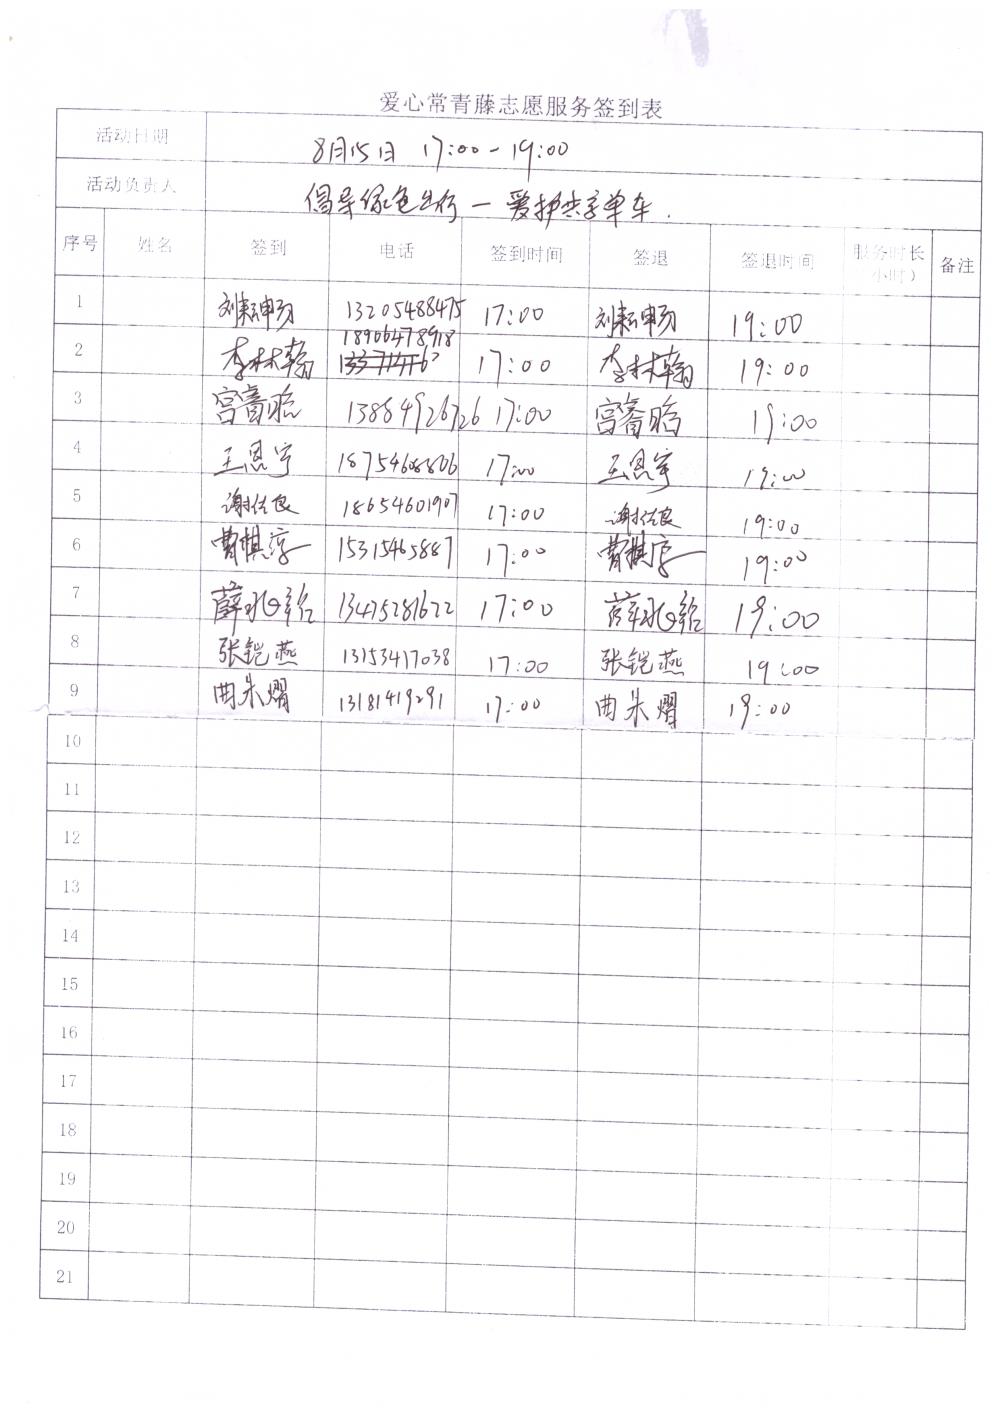 爱心常青藤志愿服务签到表
活动日期 8月15日 17:00-19:00
活动负责人 倡导绿色出行一爱护共享单车.
序号 姓名 签到 电话 签到时间 签退 签退时间 服务时长 备注
小时)
1 刘耘畅 13205488475 17:00 刘耘畅 19:00
18906478918
2 李林翰 17:00 李林翰 19:00
3 宫 13864926726 17:00 宫 19:00
4 王恩宇 18754608806 17:00 王恩宇 19:00
5 谢佐良 18654601907 17:00 谢佐良 19:00
6 曹棋淳 15315465887 17:00 曹棋淳 19:00
7 薛 13475281622 17:00 薛 19:00
8 张铠燕 13153417038 17:00 张铠燕 19:00
9 曲朱熠 13181419291 17:00 曲朱熠 19:00
10
11
12
13
14
15
16
17
18
19
20
21